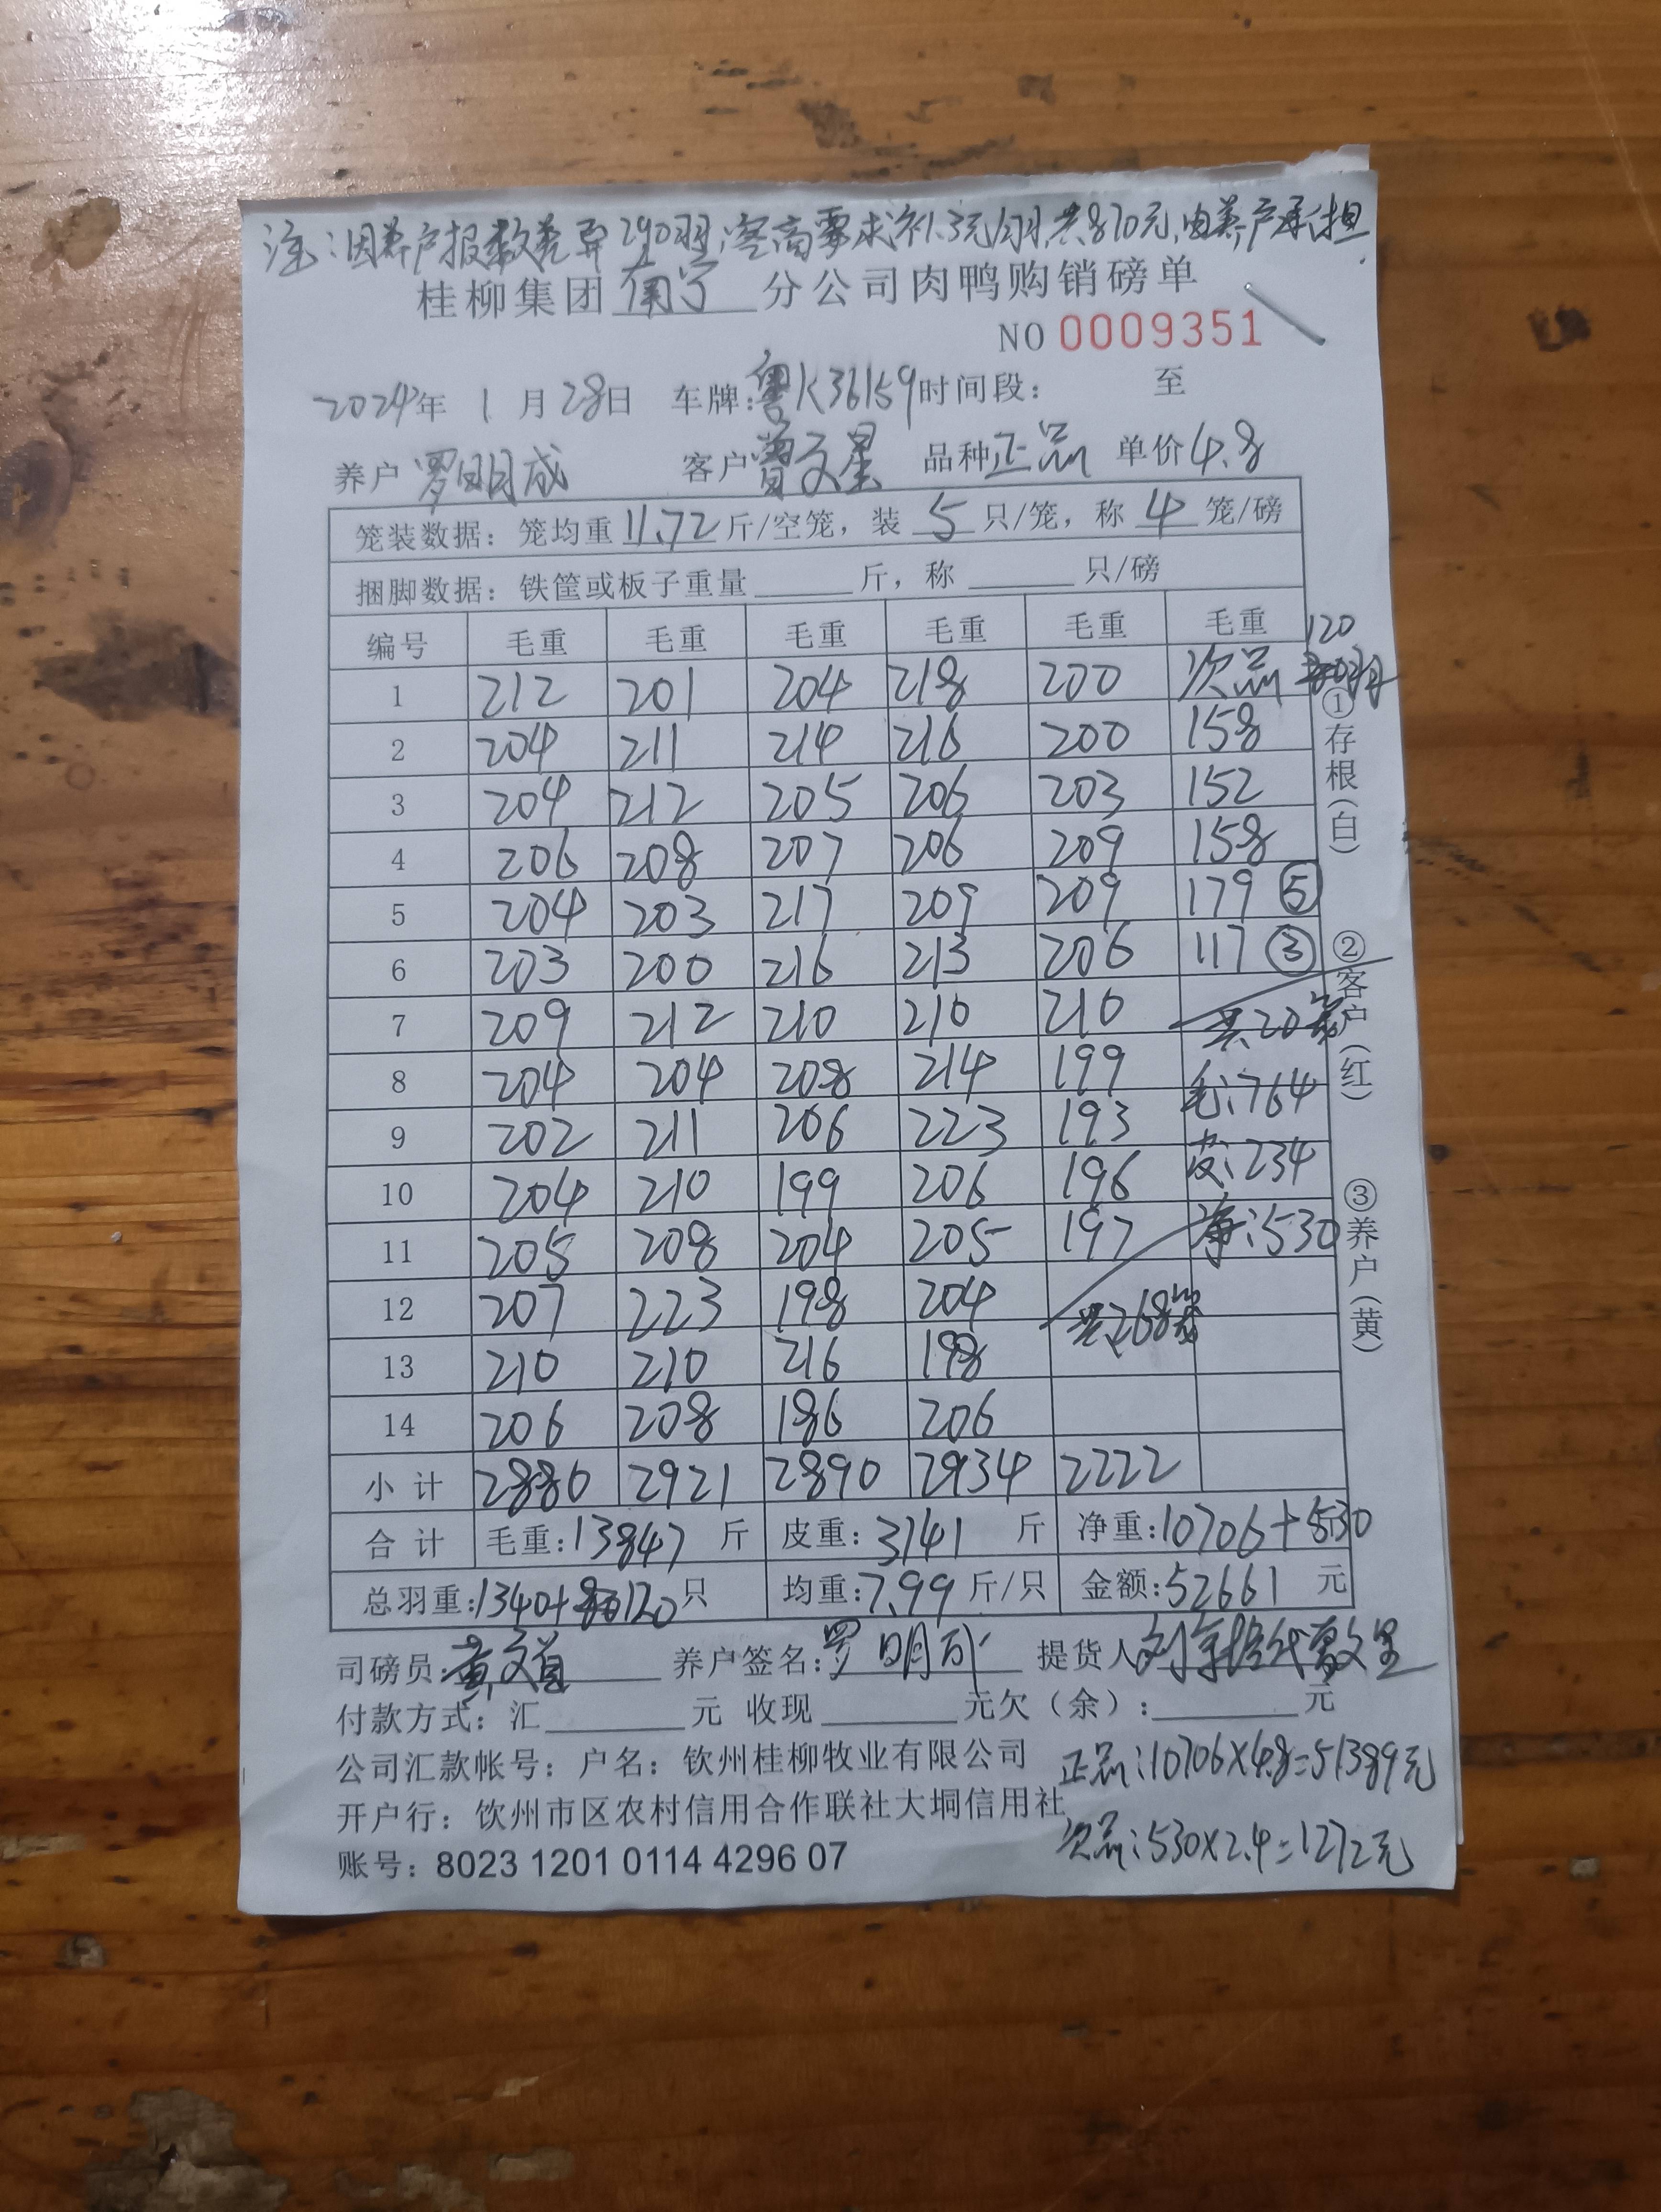 注:因养户报数差异290羽,客商要求补3元/羽,共870元,由养户承担.
桂柳集团 南宁 分公司肉鸭购销磅单
NO 0009351
2024年 1 月 28日 车牌:粤K36159 时间段: 至
养户 罗明成 客户 曾文星 品种 正品 单价 4.8
笼装数据: 笼均重 11.72 斤/空笼, 装 5 只/笼, 称 4 笼/磅
捆脚数据: 铁筐或板子重量 斤, 称 只/磅
120
编号 毛重 毛重 毛重 毛重 毛重 毛重
1 212 201 204 218 200 次品
2 204 211 214 216 200 158
3 204 212 205 206 203 152
4 206 208 207 206 209 158
5 204 203 217 209 209 179 ⑤
6 203 200 216 213 206 117 ③
7 209 212 210 210 210 共20笼
8 204 204 208 214 199 毛:764
9 202 211 206 223 193 皮:234
10 204 210 199 206 196 净:530
11 205 208 204 205 197
12 207 223 198 204 共268笼
13 210 210 216 198
14 206 208 186 206
小计 2880 2921 2890 2934 2222
合计 毛重:13847 斤 皮重:3141 斤 净重:10706+530
总羽重:1340+120只 均重:7.99斤/只 金额:52661 元
①存根(白)
②客户(红)
③养户(黄)
司磅员: 养户签名:罗明成 提货人
付款方式: 汇 元 收现 元欠(余): 元
公司汇款帐号: 户名: 钦州桂柳牧业有限公司
正品:10706×4.8=51389元
开户行: 钦州市区农村信用合作联社大垌信用社
次品:530×2.4=1272元
账号: 8023 1201 0114 4296 07